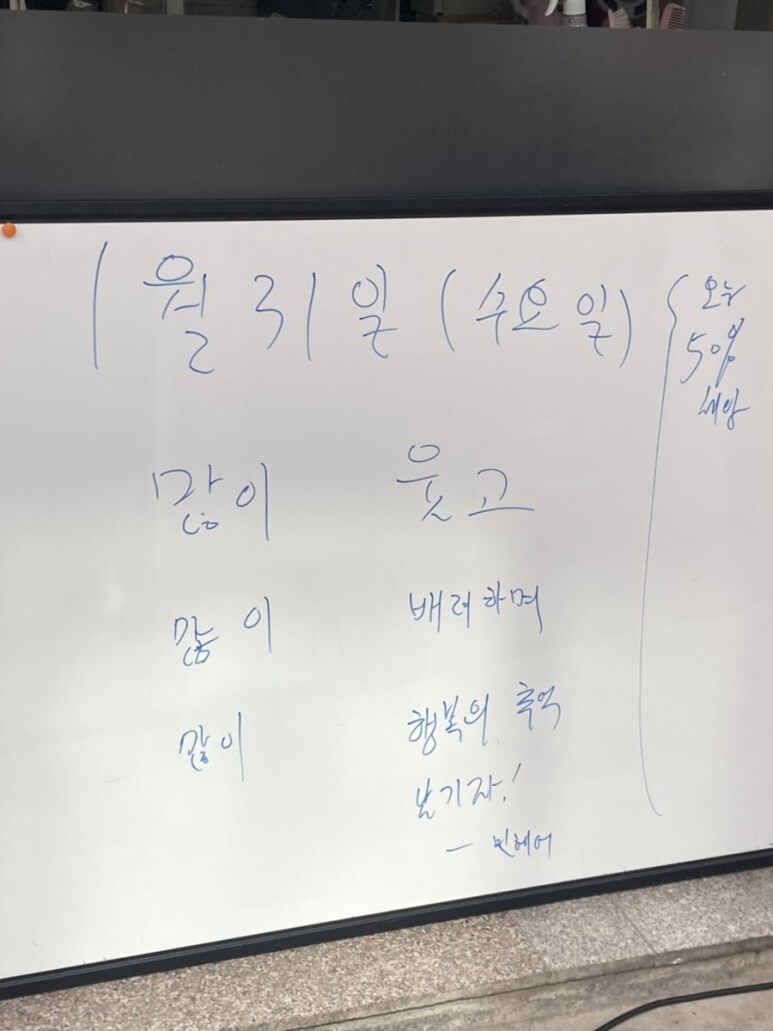 1월 31일 (수요일)
많이 웃고
많이 배려하며
많이 행복의 추억
보기자!
- 빈헤어
오누
50%
세양